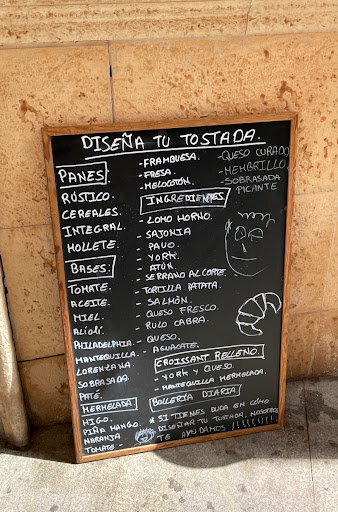 DISEÑA TU TOSTADA.
PANES
RÚSTICO.
CEREALES.
INTEGRAL.
HOLLETE.
BASES:
TOMATE.
ACEITE.
MIEL.
ALIOLI.
PHILADELPHIA.
MANTEQUILLA.
LORENZANA.
SOBRASADA.
PATE.
MERMELADA
HIGO.
PIÑA MANGO.
NARANJA
TOMATE -
-FRAMBUESA.
-FRESA.
-MELOCOTÓN.
INGREDIENTES
- LOMO HORNO.
- SAJONIA
- PAVO.
- YORK.
- ATÚN.
- SERRANO AL CORTE.
- TORTILLA PATATA.
- SALMÓN.
- QUESO FRESCO.
- RULO CABRA.
- QUESO.
- AGUACATE.
CROISSANT RELLENO.
- YORK Y QUESO.
- MANTEQUILLA MERMELADA.
BOLLERÍA DIARIA
* SI TIENES DUDA EN CÓMO
DISEÑAR TU TOSTADA, NOSOTROS
TE AYUDAMOS !!!!!!!
-QUESO CURADO
-MEMBRILLO.
-SOBRASADA
PICANTE